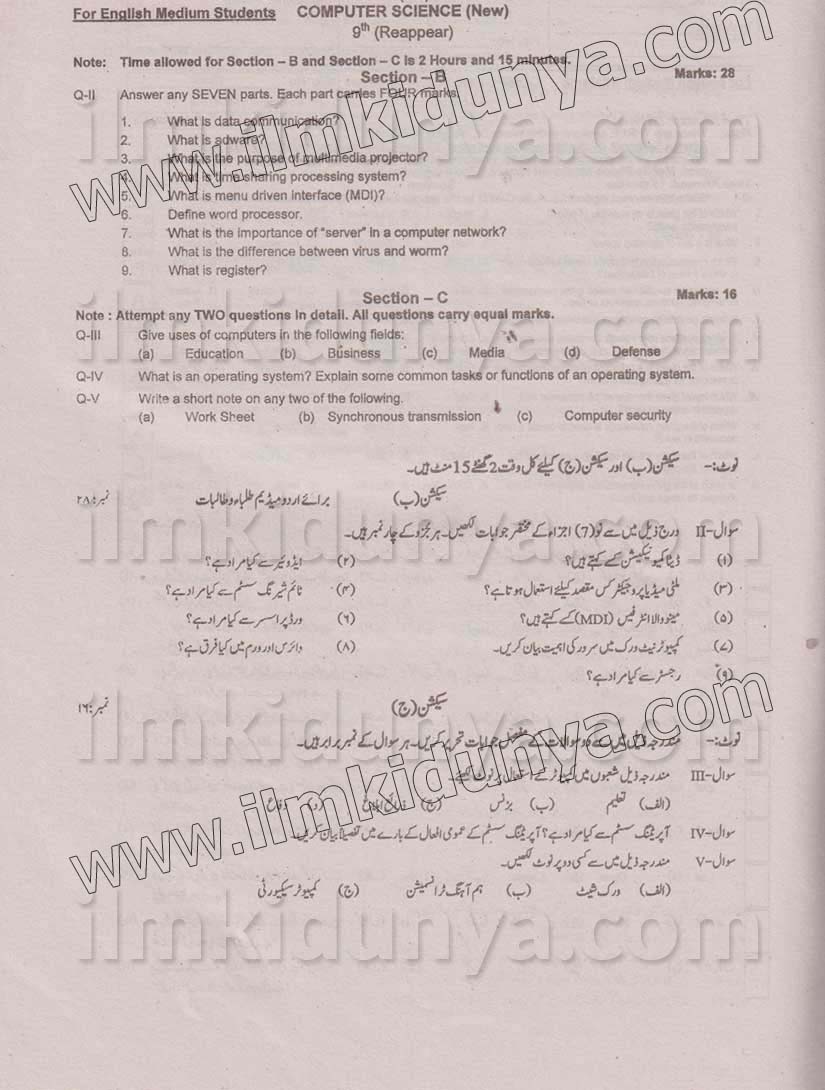 For English Medium Students COMPUTER SCIENCE (New)
9th (Reappear)
Note: Time allowed for Section – B and Section – C is 2 Hours and 15 minutes.
Section – B Marks: 28
Q-II Answer any SEVEN parts. Each part carries FOUR marks.
1. What is data communication?
2. What is adware?
3. What is the purpose of multimedia projector?
4. What is time sharing processing system?
5. What is menu driven interface (MDI)?
6. Define word processor.
7. What is the importance of "server" in a computer network?
8. What is the difference between virus and worm?
9. What is register?
Section – C Marks: 16
Note : Attempt any TWO questions in detail. All questions carry equal marks.
Q-III Give uses of computers in the following fields:
(a) Education (b) Business (c) Media (d) Defense
Q-IV What is an operating system? Explain some common tasks or functions of an operating system.
Q-V Write a short note on any two of the following.
(a) Work Sheet (b) Synchronous transmission (c) Computer security
نوٹ:- سیکشن (ب) اور سیکشن (ج) کیلئے کل وقت 2 گھنٹے 15 منٹ ہیں۔
سیکشن (ب) برائے اردو میڈیم طلباء و طالبات نمبر:۲۸
سوال-II درج ذیل میں سے نو (7) اجزاء کے مختصر جوابات لکھیں۔ ہر جزو کے چار نمبر ہیں۔
(۱) ڈیٹا کمیونیکیشن کسے کہتے ہیں؟ (۲) ایڈوئیر سے کیا مراد ہے؟
(۳) ملٹی میڈیا پروجیکٹر کس مقصد کیلئے استعمال ہوتا ہے؟ (۴) ٹائم شیرنگ سسٹم سے کیا مراد ہے؟
(۵) مینو والا انٹرفیس (MDI) کسے کہتے ہیں؟ (۶) ورڈ پراسسر سے کیا مراد ہے؟
(۷) کمپیوٹر نیٹ ورک میں سرور کی اہمیت بیان کریں۔ (۸) وائرس اور ورم میں کیا فرق ہے؟
(۹) رجسٹر سے کیا مراد ہے؟
سیکشن (ج) نمبر:۱۶
نوٹ:- مندرجہ ذیل میں سے دو سوالات کے مفصل جوابات تحریر کریں۔ ہر سوال کے نمبر برابر ہیں۔
سوال-III مندرجہ ذیل شعبوں میں کمپیوٹر کے استعمال پر نوٹ لکھئے۔
(الف) تعلیم (ب) بزنس (ج) ذرائع ابلاغ (د) دفاع
سوال-IV آپریٹنگ سسٹم سے کیا مراد ہے؟ آپریٹنگ سسٹم کے عمومی افعال کے بارے میں تفصیلاً بیان کریں۔
سوال-V مندرجہ ذیل میں سے کسی دو پر نوٹ لکھیں۔
(الف) ورک شیٹ (ب) ہم آہنگ ٹرانسمیشن (ج) کمپیوٹر سیکیورٹی
www.ilmkidunya.com
www.ilmkidunya.com
ilmkidunya.com
ilmkidunya.com
ilmkidunya.com
ilmkidunya.com
ilmkidunya.com